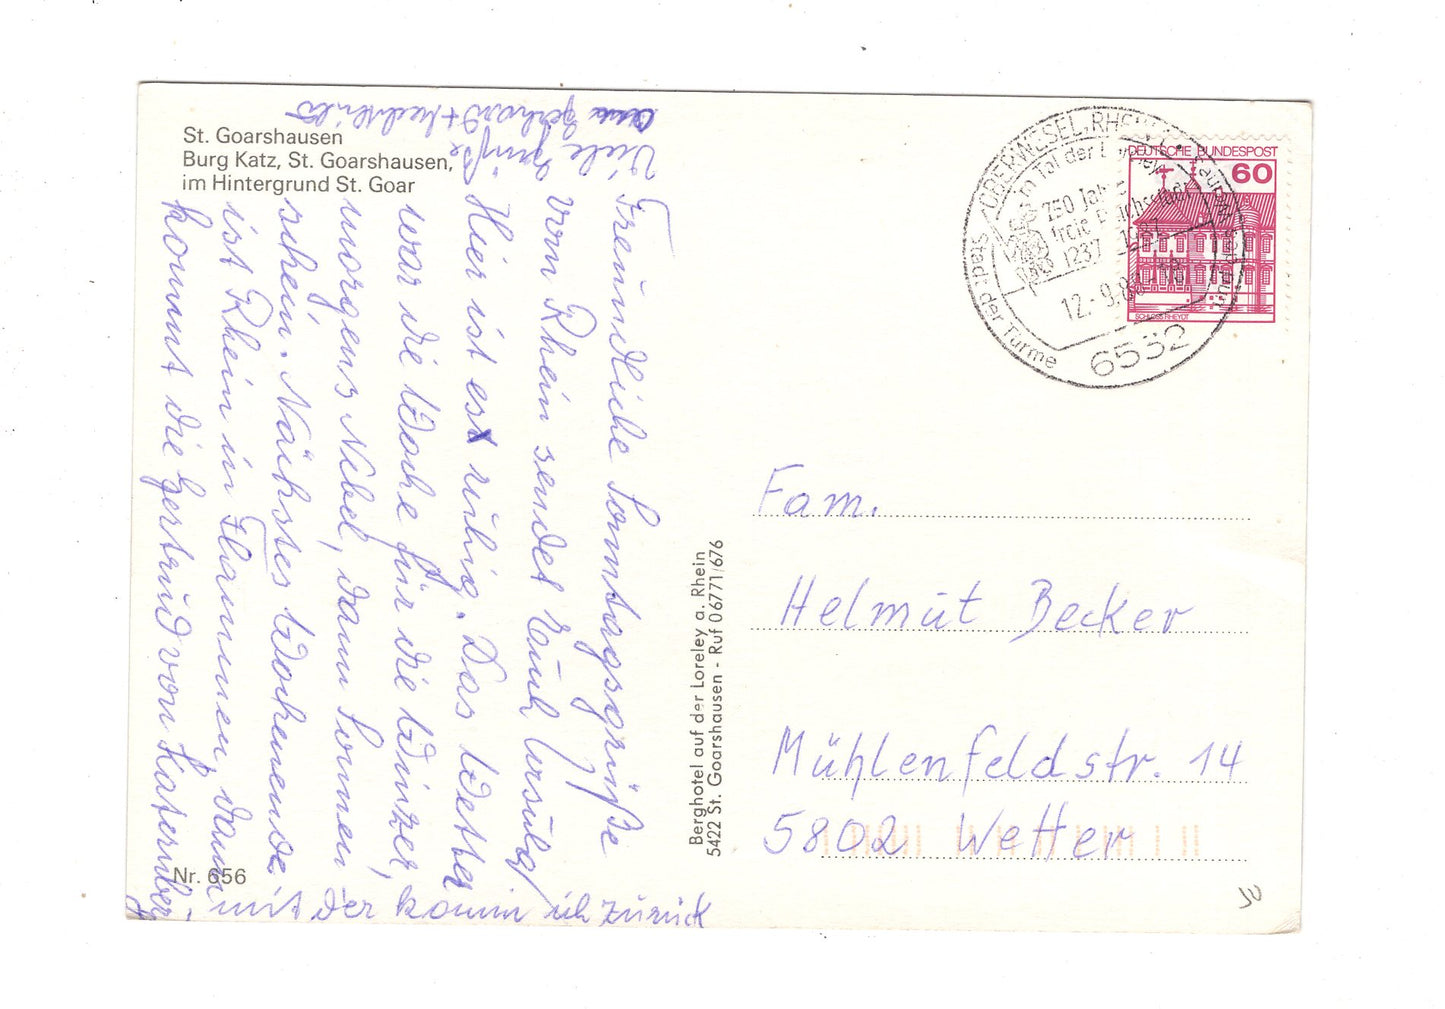 St. Goarshausen
Burg Katz, St. Goarshausen,
im Hintergrund St. Goar
Freundliche Sonntagsgrüße
vom Rhein sendet Euch Ursula
Hier ist es ruhig. Das Wetter
war die Woche für die Winzer,
morgens Nebel, dann Sonnen
schein. Nächstes Wochenende
ist Rhein in Flammen dann
kommt die Gertrud von Katernberg
mit der komm ich zurück
Viele Grüße
an Gerhard +
Nr. 656
Berghotel auf der Loreley a. Rhein
5422 St. Goarshausen - Ruf 06771/676
OBERWESEL, RHEIN
Stadt der Türme
im Tal der Loreley
750 Jahre
freie Reichsstadt
1237 - 1987
12.-9.88-18
6532
DEUTSCHE BUNDESPOST
60
SCHLOSS RHEYDT
Fam.
Helmut Becker
Mühlenfeldstr. 14
5802 Wetter